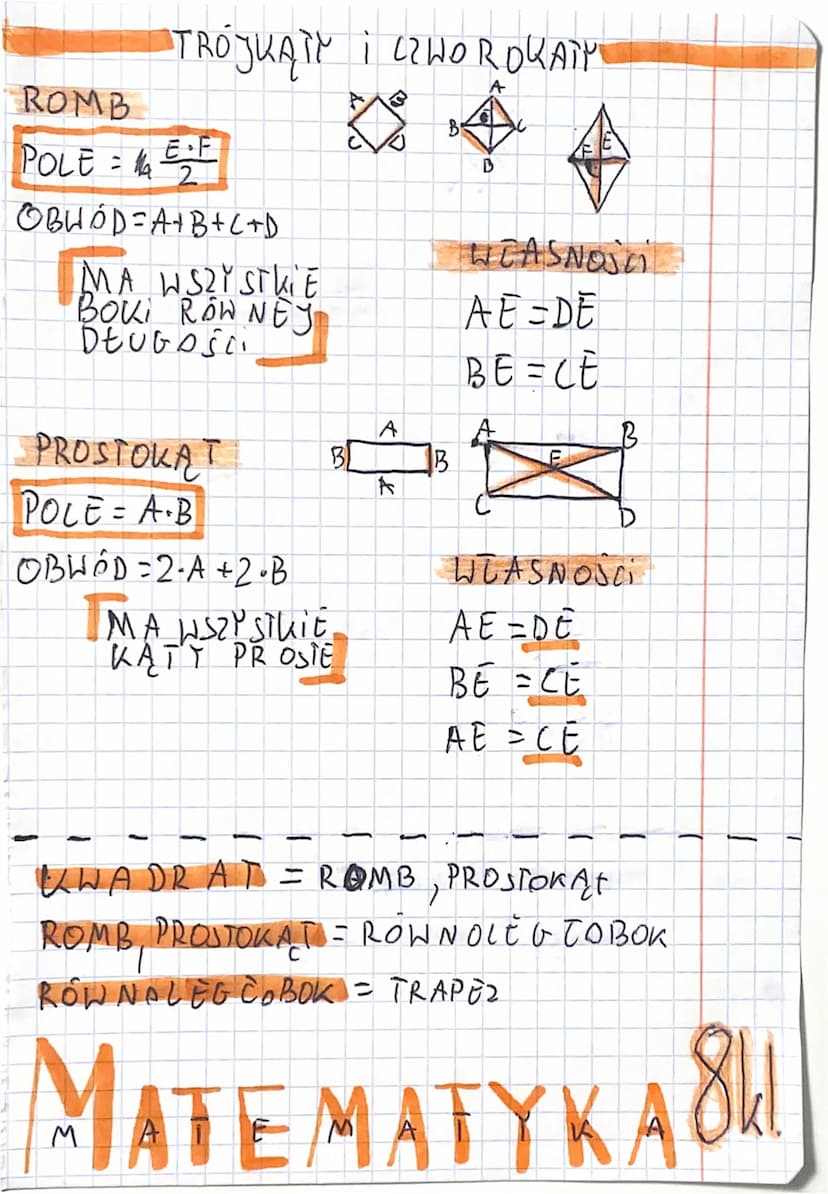 TRÓJKĄTY i CZWOROKATY
ROMB
POLE = E·F/2
OBWÓD=A+B+C+D
MA WSZYSTKIE
BOKI RÓWNEJ
DŁUGOŚCI
A B
C D
A
B E C
D
F E
WŁASNOŚCI
AE=DE
BE=CE
PROSTOKĄT
POLE = A·B
OBWÓD=2·A+2·B
MA WSZYSTKIE
KĄTY PROSTE
A
B B
A
A B
E
C D
WŁASNOŚCI
AE=DE
BE=CE
AE=CE
KWADRAT = ROMB, PROSTOKĄT
ROMB, PROSTOKĄT = RÓWNOLEGŁOBOK
RÓWNOLEGŁOBOK = TRAPEZ
MATEMATYKA 8kl.
M A T E M A T Y K A